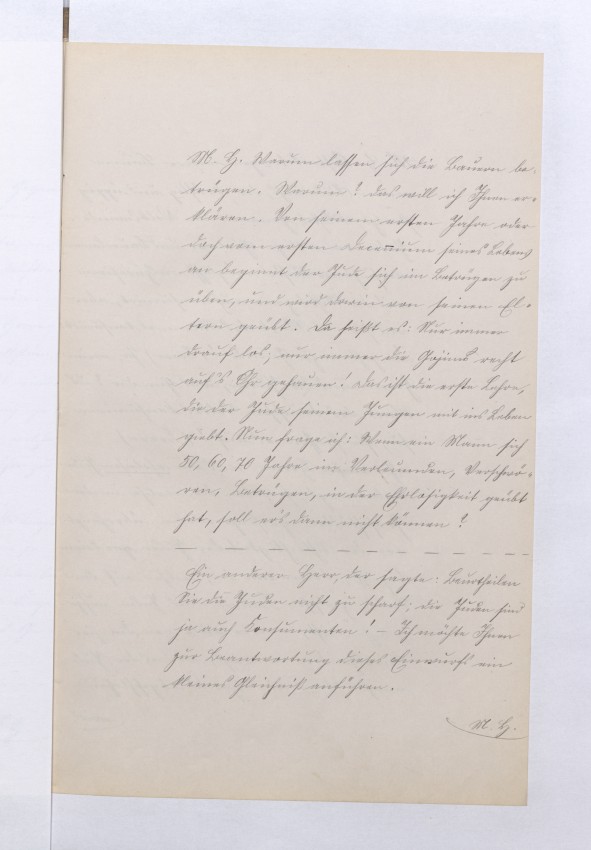 M. H. Warum lassen sich die Bauern be-
trügen. Warum? das will ich Ihnen er-
klären. Von seinem ersten Jahre oder
doch vom ersten Decennium seines Lebens
an beginnt der Jude sich im Betrügen zu
üben, und wird darin von seinen El-
tern geübt. Da heißt es: Nur immer
drauf los, nur immer die Gojims recht
auf's Ohr gehauen! Das ist die erste Lehre,
die der Jude seinem Jungen mit ins Leben
giebt. Nun frage ich: Wenn ein Mann sich
50, 60, 70 Jahre im Verleumden, Verschwö-
ren, Betrügen, in der Ehrlosigkeit geübt
hat, soll ers dann nicht können?
Ein anderer Herr, der sagte: Beurtheilen
Sie die Juden nicht zu scharf; die Juden sind
ja auch Konsumenten! – Ich möchte Ihnen
zur Beantwortung dieses Einwurfs ein
kleines Gleichniß anführen.
M. H.